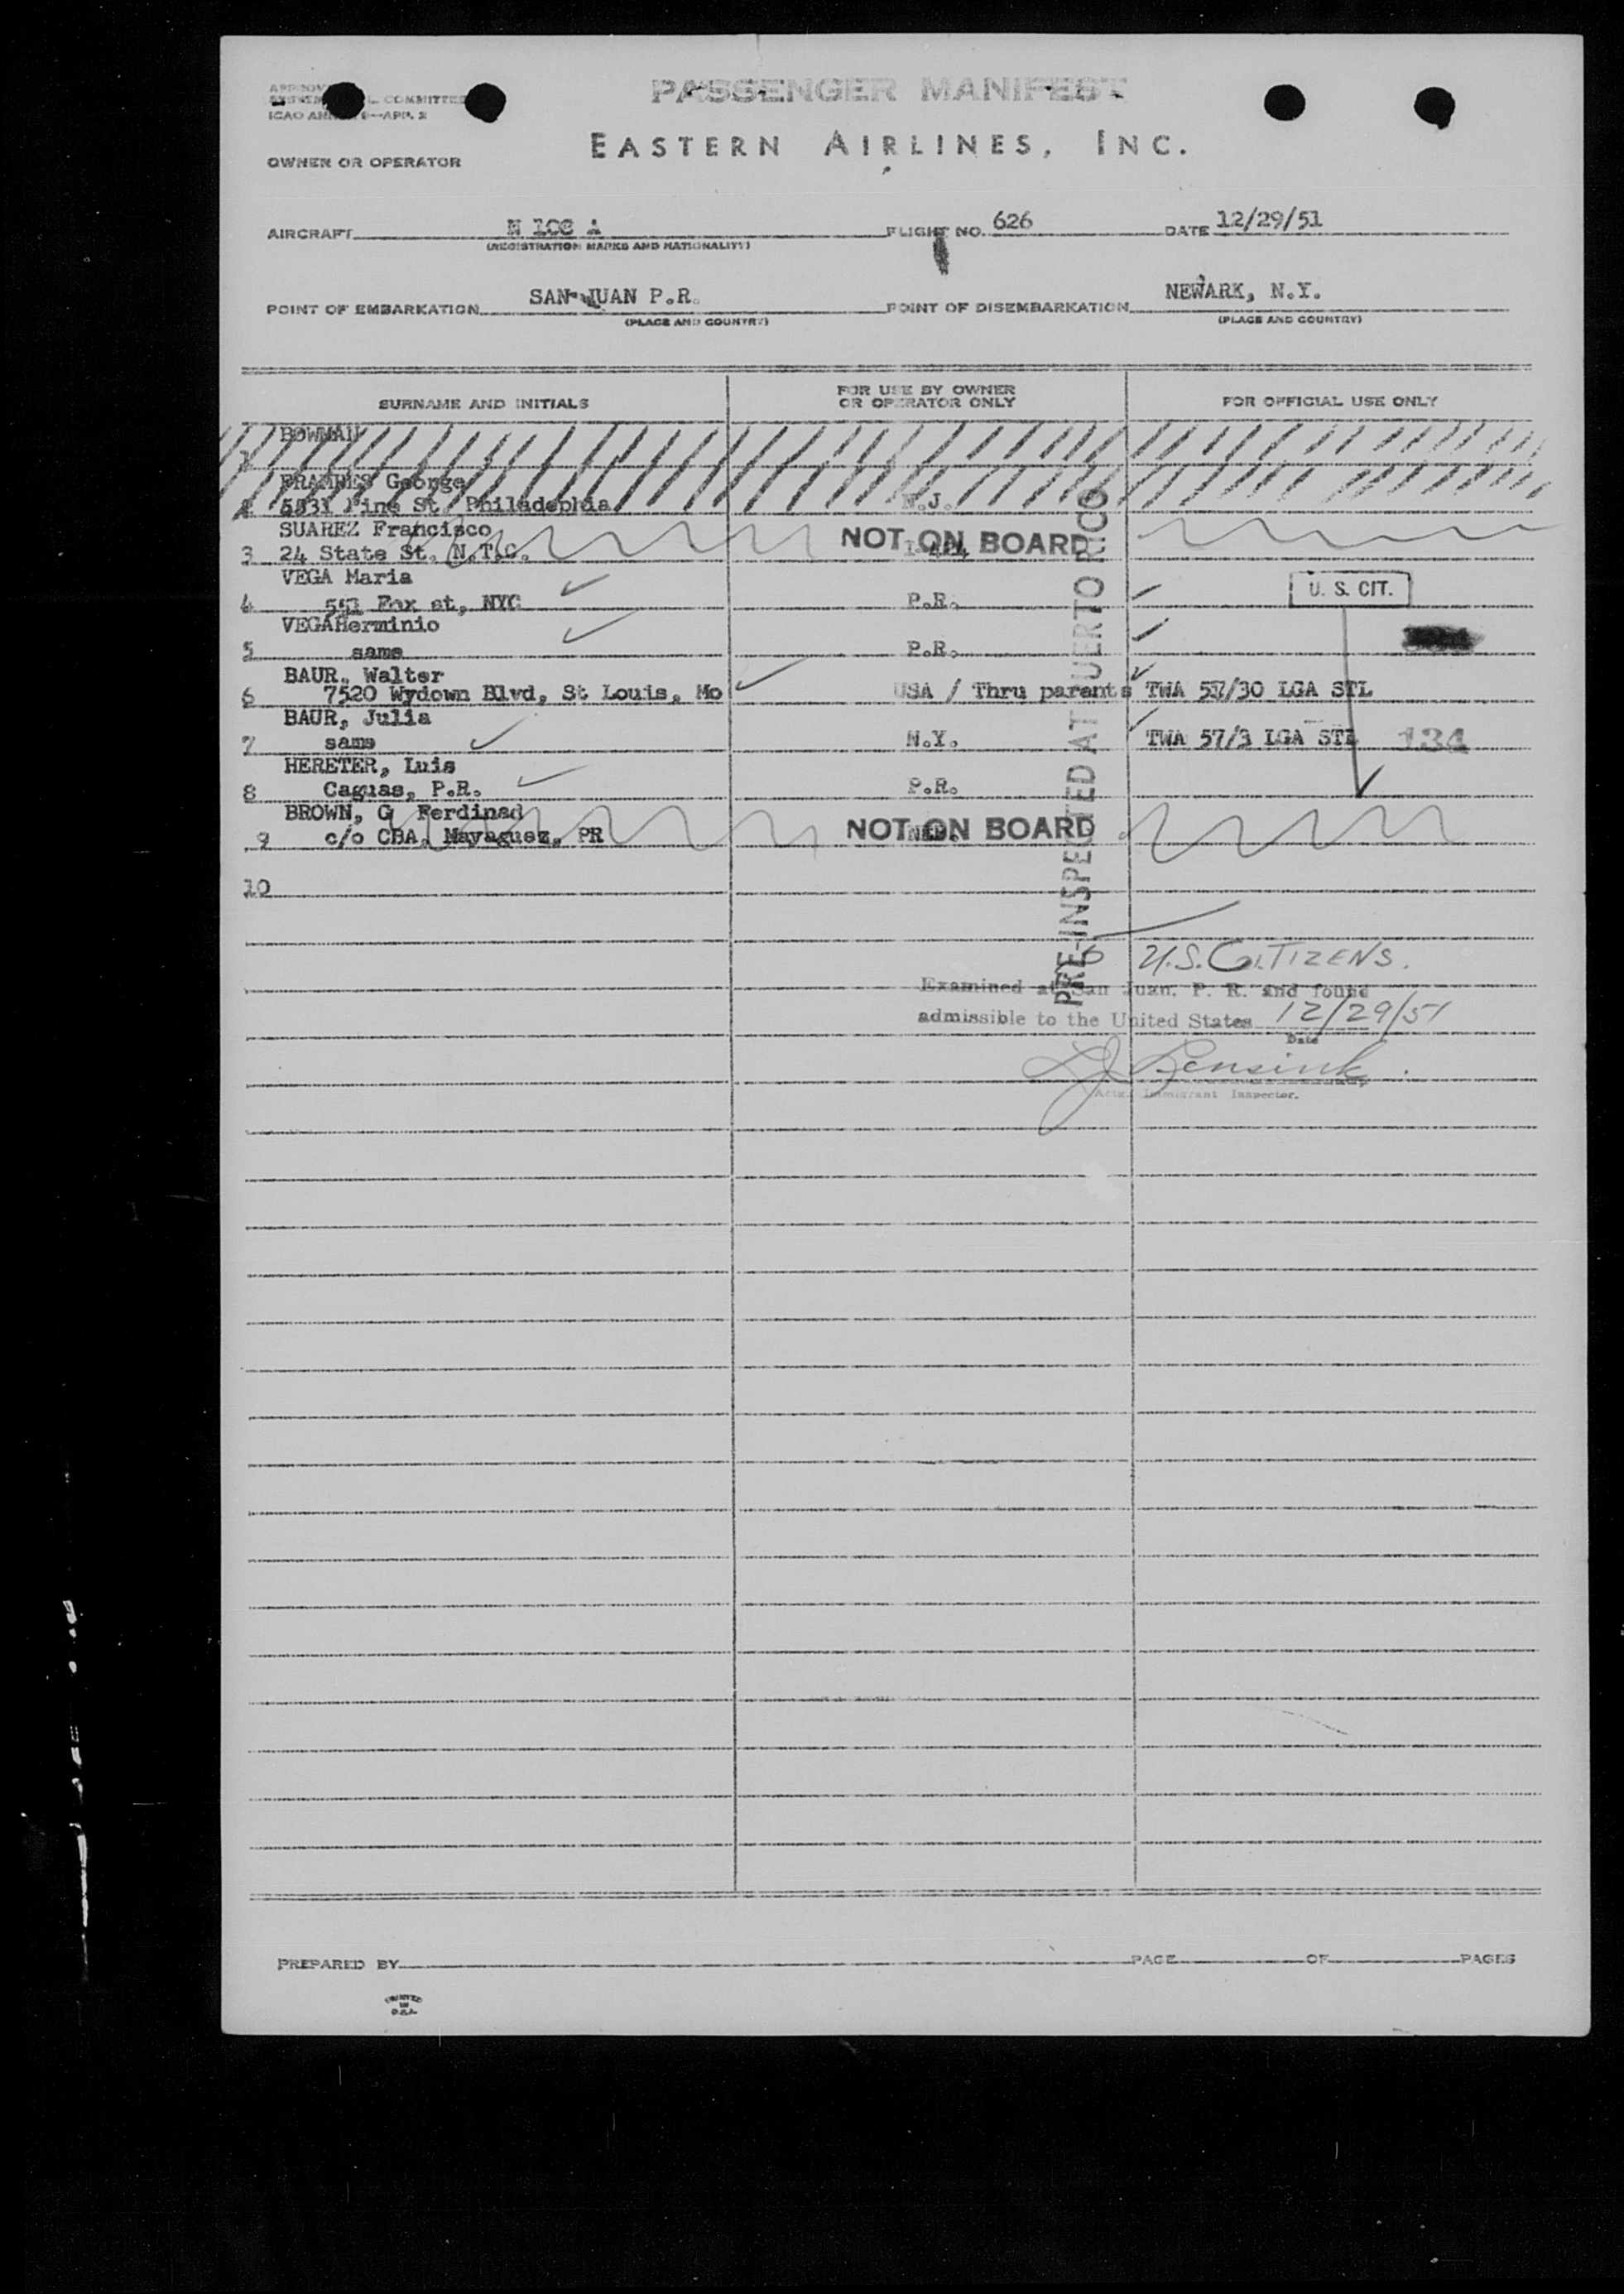 PASSENGER MANIFEST
COMMITTEE
ICAO APP. 2
EASTERN AIRLINES, INC.
OWNER OR OPERATOR
AIRCRAFT N 108 A FLIGHT NO. 626 DATE 12/29/51
(REGISTRATION MARKS AND NATIONALITY)
POINT OF EMBARKATION SAN JUAN P.R. POINT OF DISEMBARKATION NEWARK, N.Y.
(PLACE AND COUNTRY) (PLACE AND COUNTRY)
SURNAME AND INITIALS FOR USE BY OWNER OR OPERATOR ONLY FOR OFFICIAL USE ONLY
BOWMAN
1
George
2 5531 Pine St. Philadephia N.J.
SUAREZ Francisco
3 24 State St. N.T.C. NOT ON BOARD
VEGA Maria
4 551 Fox st, NYC P.R. U. S. CIT.
VEGAHerminio
5 same P.R.
BAUR, Walter
6 7520 Wydown Blvd, St Louis, Mo USA / Thru parants TWA 57/30 LGA STL
BAUR, Julia
7 same N.Y. TWA 57/3 LGA STL 134
HERETER, Luis
8 Caguas, P.R. P.R.
BROWN, G Ferdinad
9 c/o CBA, Mayaguez, PR NOT ON BOARD
10
PRE-INSPECTED AT PUERTO RICO
6 U.S. CITIZENS.
Examined at San Juan, P. R. and found
admissible to the United States 12/29/51
Date
Immigrant Inspector.
PREPARED BY PAGE OF PAGES
PRINTED
IN
U.S.A.